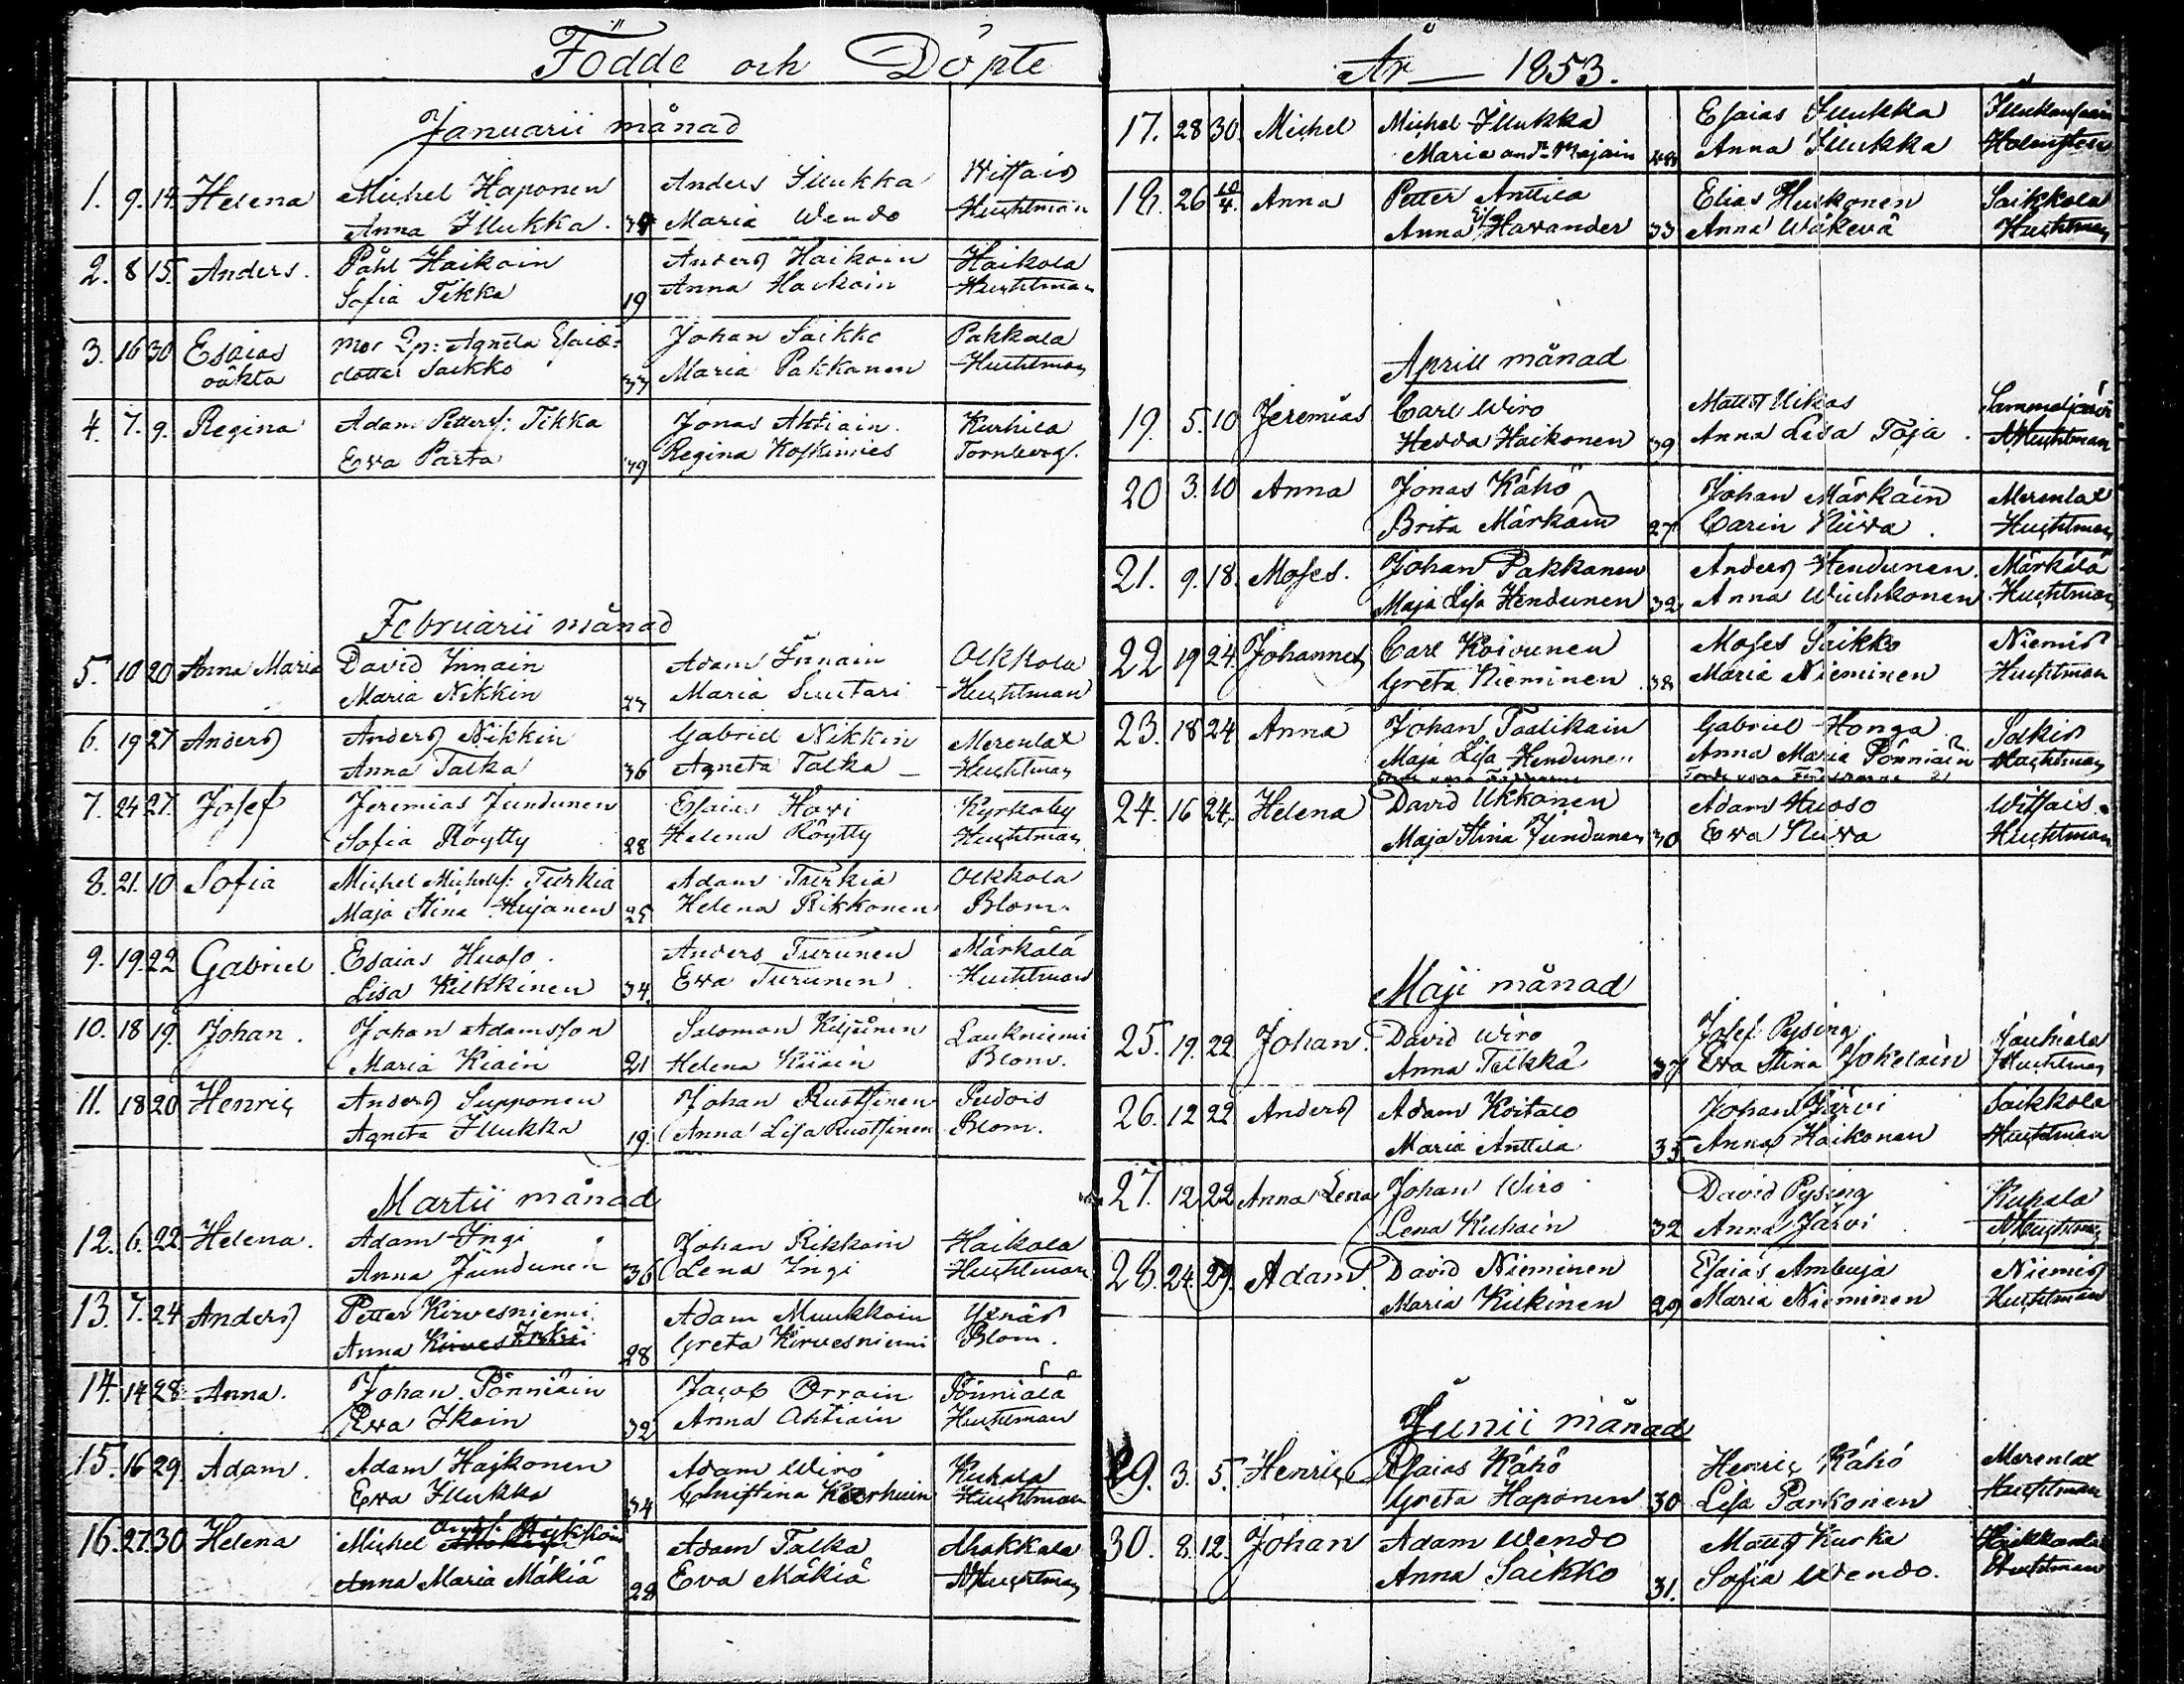 Födde och Döpte
Januarii månad
1. 9. 14. Helena Michel Haponen Anders Illukka Wittais
Anna Illukka. 34 Maria Wendo Huuhtman
2. 8 15. Anders. Påhl Haikain Anders Haikain Haikola
Sofia Tikka 19 Anna Haikain Huuhtman
3. 16 30 Esaias mor Qp: Agneta Esaiæ Johan Saikko Pakkala
oäkta dotter Saikko 33 Maria Pakkanen Huuhtman
4. 7. 9. Regina Adam Petters: Tikka Jonas Ahtiain. Kurhila
Ewa Parta 39 Regina Koskimies Tornberg.
Februarii månad
5. 10 20 Anna Maria David Innain Adam Innain Olkkola
Maria Nikkin 23 Maria Suutari Huuhtman
6. 19 27 Anders Anders Nikkin Gabriel Nikkin Merenlax
Anna Talka 36 Agneta Talka Huuhtman
7. 24 27. Josef Jeremias Jundunen Esaias Howi Kyrkoby
Sofia Röytty 28 Helena Röytty Huuhtman
8. 21. 10 Sofia Michel Michels: Turkia Adam Turkia Olkkola
Maja Stina Hujanen 25 Helena Rikkonen Blom.
9. 19. 22 Gabriel Esaias Huoso. Anders Turunen Märkälä
Lisa Kilkkinen 34. Ewa Turunen Huuhtman
10. 18 19. Johan. Johan Adamsson Salomon Kiljunen Laukniemi
Maria Kiain 21 Helena Kiiain Blom.
11. 18 20 Henric Anders Supponen Johan Ruottinen Pudois
Agneta Illukka 19. Anna Lisa Ruottinen Blom.
Martii månad
12. 6. 22 Helena. Adam Ingi Johan Rikkain Haikola
Anna Jundunen 36 Lena Ingi Huuhtman
13. 7. 24 Anders Petter Kirvesniemi Adam Muukkain
Anna 28 Greta Kirvesniemi Blom.
14. 14 28 Anna. Johan Pönniäin Jacob Orrain Pönniälä
Ewa Ikain 32 Anna Ahtiain Huuhtman
15. 16 29 Adam. Adam Haikonen Adam Wiro Kuhala
Ewa Illukka 34 Christina Huuhtman
16. 27. 30 Helena Michel Adam Talka Ahokkala
Anna Maria Mäkiä 28 Eva Mäkiä Huuhtman
År — 1853.
17. 28 30. Michel Michel Illukka Esaias Illukka
Maria 28 Anna Illukka Holmsten
18. 26 10/4. Anna Petter Anttila Elias Huskonen Saikkola
Anna Havander 33 Anna Wäkevä Huuhtman
Aprill månad
19. 5. 10 Jeremias Carl Wiro Matts Uikas Sammaljärvi
Hedda Haikonen 39 Anna Lisa Toja. Huuhtman
20 3. 10 Anna Jonas Kähö Johan Märkäin Merenlax
Brita Märkäin 27 Carin Niiva. Huuhtman
21. 9. 18. Moses. Johan Pakkanen Anders Hendunen. Märkälä
Maja Lisa Hendunen 32 Anna Wiuhkonen Huuhtman
22 19 24. Johannes Carl Koivunen Moses Saikko Niemis
Greta Nieminen 38 Maria Nieminen Huuhtman
23. 18 24 Anna Johan Taalikain Gabriel Honga Salkis
Maja Lisa Hendunen Anna Maria Pönniäin Huuhtman
24. 16 24. Helena David Ukkonen Adam Huoso Wittais.
Maja Stina Jundunen 30 Ewa Niiva Huuhtman
Maji månad
25. 19. 22. Johan. David Wiro Josef Pysing
Anna Talkka 37 Ewa Stina Jokelain Huuhtman
26. 12 22. Anders Adam Koitalo Johan Järvi Saikkola
Maria Anttila 35. Anna Haikonen Huuhtman
27. 12 22 Anna Lena Johan Wiro David Pysing Kuhala
Lena Kuhain 32 Anna Järvi Huuhtman
28. 24. 29. Adam. David Nieminen Esaias Ambuja Niemis
Maria Kukinen 29 Maria Nieminen Huuhtman
Junii månad
29. 3. 5. Henric Esaias Kähö Henric Kähö Merenlax
Greta Haponen 30 Lisa Pankonen Huuhtman
30. 8. 12. Johan Adam Wendo Matts Kurka
Anna Saikko 31. Sofia Wendo. Huuhtman